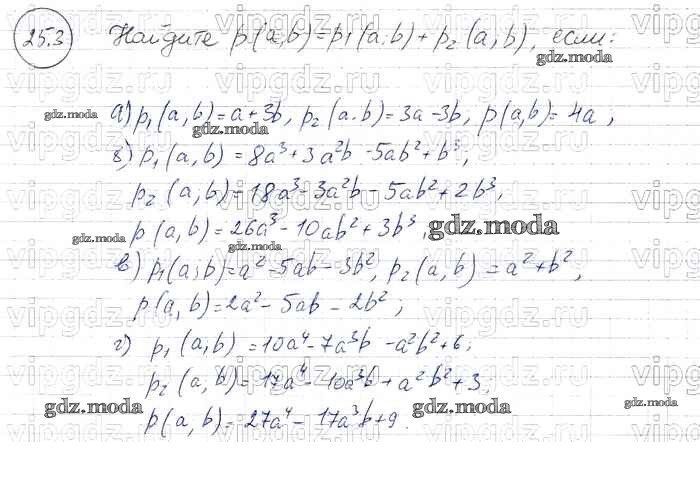 25.3 Найдите p(a,b)=p₁(a,b)+p₂(a,b), если:
а) p₁(a,b)=a+3b, p₂(a.b)=3a-3b, p(a,b)=4a,
в) p₁(a,b)=8a³+3a²b-5ab²+b³;
p₂(a,b)=18a³-3a²b-5ab²+2b³,
p(a,b)=26a³-10ab²+3b³,
в) p₁(a;b)=a²-5ab-3b², p₂(a,b)=a²+b²,
p(a,b)=2a²-5ab-2b²;
г) p₁(a,b)=10a⁴-7a³b-a²b²+6;
p₂(a,b)=17a⁴-10a³b+a²b²+3;
p(a,b)=27a⁴-17a³b+9.
gdz.moda
gdz.moda
gdz.moda
gdz.moda
gdz.moda
gdz.moda
gdz.moda
gdz.moda
gdz.moda
vipgdz.ru